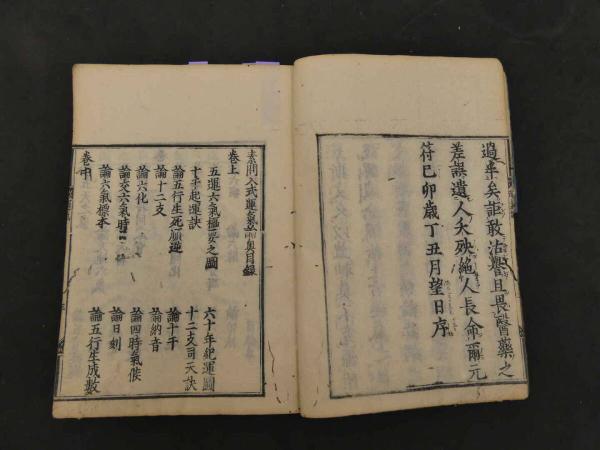 過半矣詎敢沽譽且畏醫藥之
差誤遺人夭殃絶人長命爾元
符己卯歲丁丑月望日序
素問入式運氣論奧目錄
卷上
五運六氣樞要之圖　六十年紀運圖
十干起運訣　十二支司天訣
論五行生死順逆　論十干
論十二支　論納音
論六化　論四時氣候
論交六氣時　論日刻
論六氣標本　論五行生成數
卷中